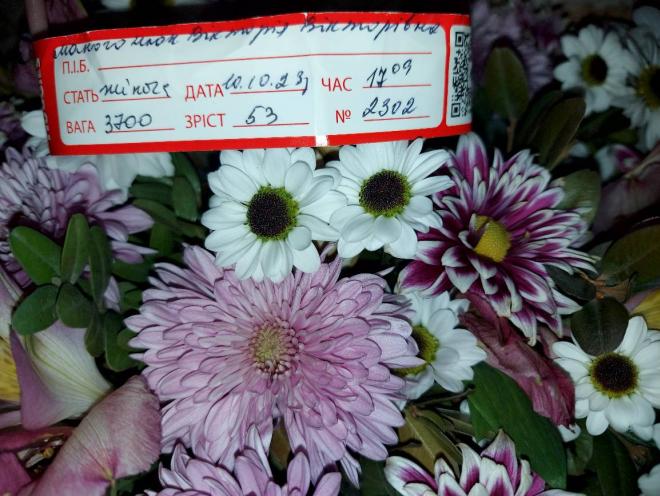 Вікторія Вікторівна
П.І.Б.
СТАТЬ жіноча ДАТА 10.10.23 ЧАС 17 09
ВАГА 3700 ЗРІСТ 53 № 2302